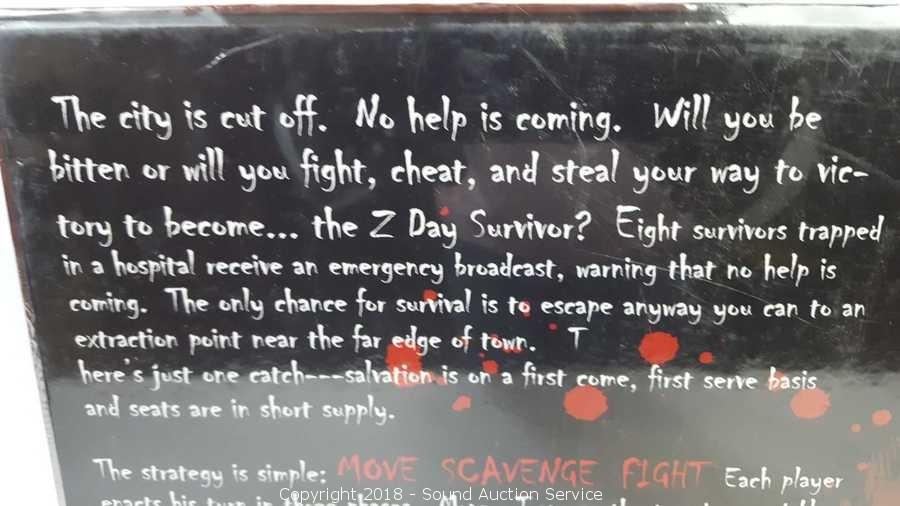 The city is cut off. No help is coming. Will you be
bitten or will you fight, cheat, and steal your way to vic-
tory to become... the Z Day Survivor? Eight survivors trapped
in a hospital receive an emergency broadcast, warning that no help is
coming. The only chance for survival is to escape anyway you can to an
extraction point near the far edge of town. T
here's just one catch---salvation is on a first come, first serve basis
and seats are in short supply.
The strategy is simple: MOVE SCAVENGE FIGHT Each player
enacts his turn in three phases.
Copyright 2018 - Sound Auction Service